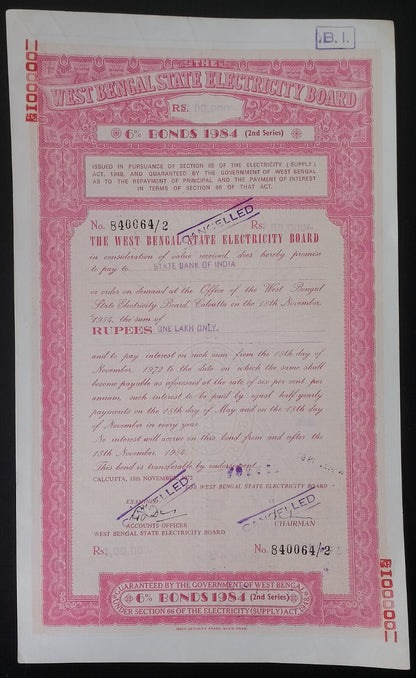 B. I.
₹100000
THE
WEST BENGAL STATE ELECTRICITY BOARD
RS.
6% BONDS 1984 (2nd Series)
ISSUED IN PURSUANCE OF SECTION 65 OF THE ELECTRICITY (SUPPLY)
ACT, 1948, AND GUARANTEED BY THE GOVERNMENT OF WEST BENGAL
AS TO THE REPAYMENT OF PRINCIPAL AND THE PAYMENT OF INTEREST
IN TERMS OF SECTION 66 OF THAT ACT.
No. 840064/2 CANCELLED Rs.
THE WEST BENGAL STATE ELECTRICITY BOARD
in consideration of value received, does hereby promise
to pay to STATE BANK OF INDIA
or order on demand at the Office of the West Bengal
State Electricity Board, Calcutta on the 18th November,
1984, the sum of
RUPEES ONE LAKH ONLY.
and to pay interest in such sum from the 18th day of
November, 1972 to the date on which the same shall
become payable as aforesaid at the rate of six per cent per
annum, such interest to be paid by equal half-yearly
payments on the 18th day of May and on the 18th day
of November in every year.
No interest will accrue on this bond from and after the
18th November, 1984.
This bond is transferable by
CALCUTTA, 18th NOVEMBER, 1972
FOR WEST BENGAL STATE ELECTRICITY BOARD
EXAMINED
CANCELLED
CANCELLED
ACCOUNTS OFFICER
WEST BENGAL STATE ELECTRICITY BOARD
CHAIRMAN
Rs. No. 840064/2
GUARANTEED BY THE GOVERNMENT OF WEST BENGAL
6% BONDS 1984 (2nd Series)
UNDER SECTION 66 OF THE ELECTRICITY (SUPPLY) ACT